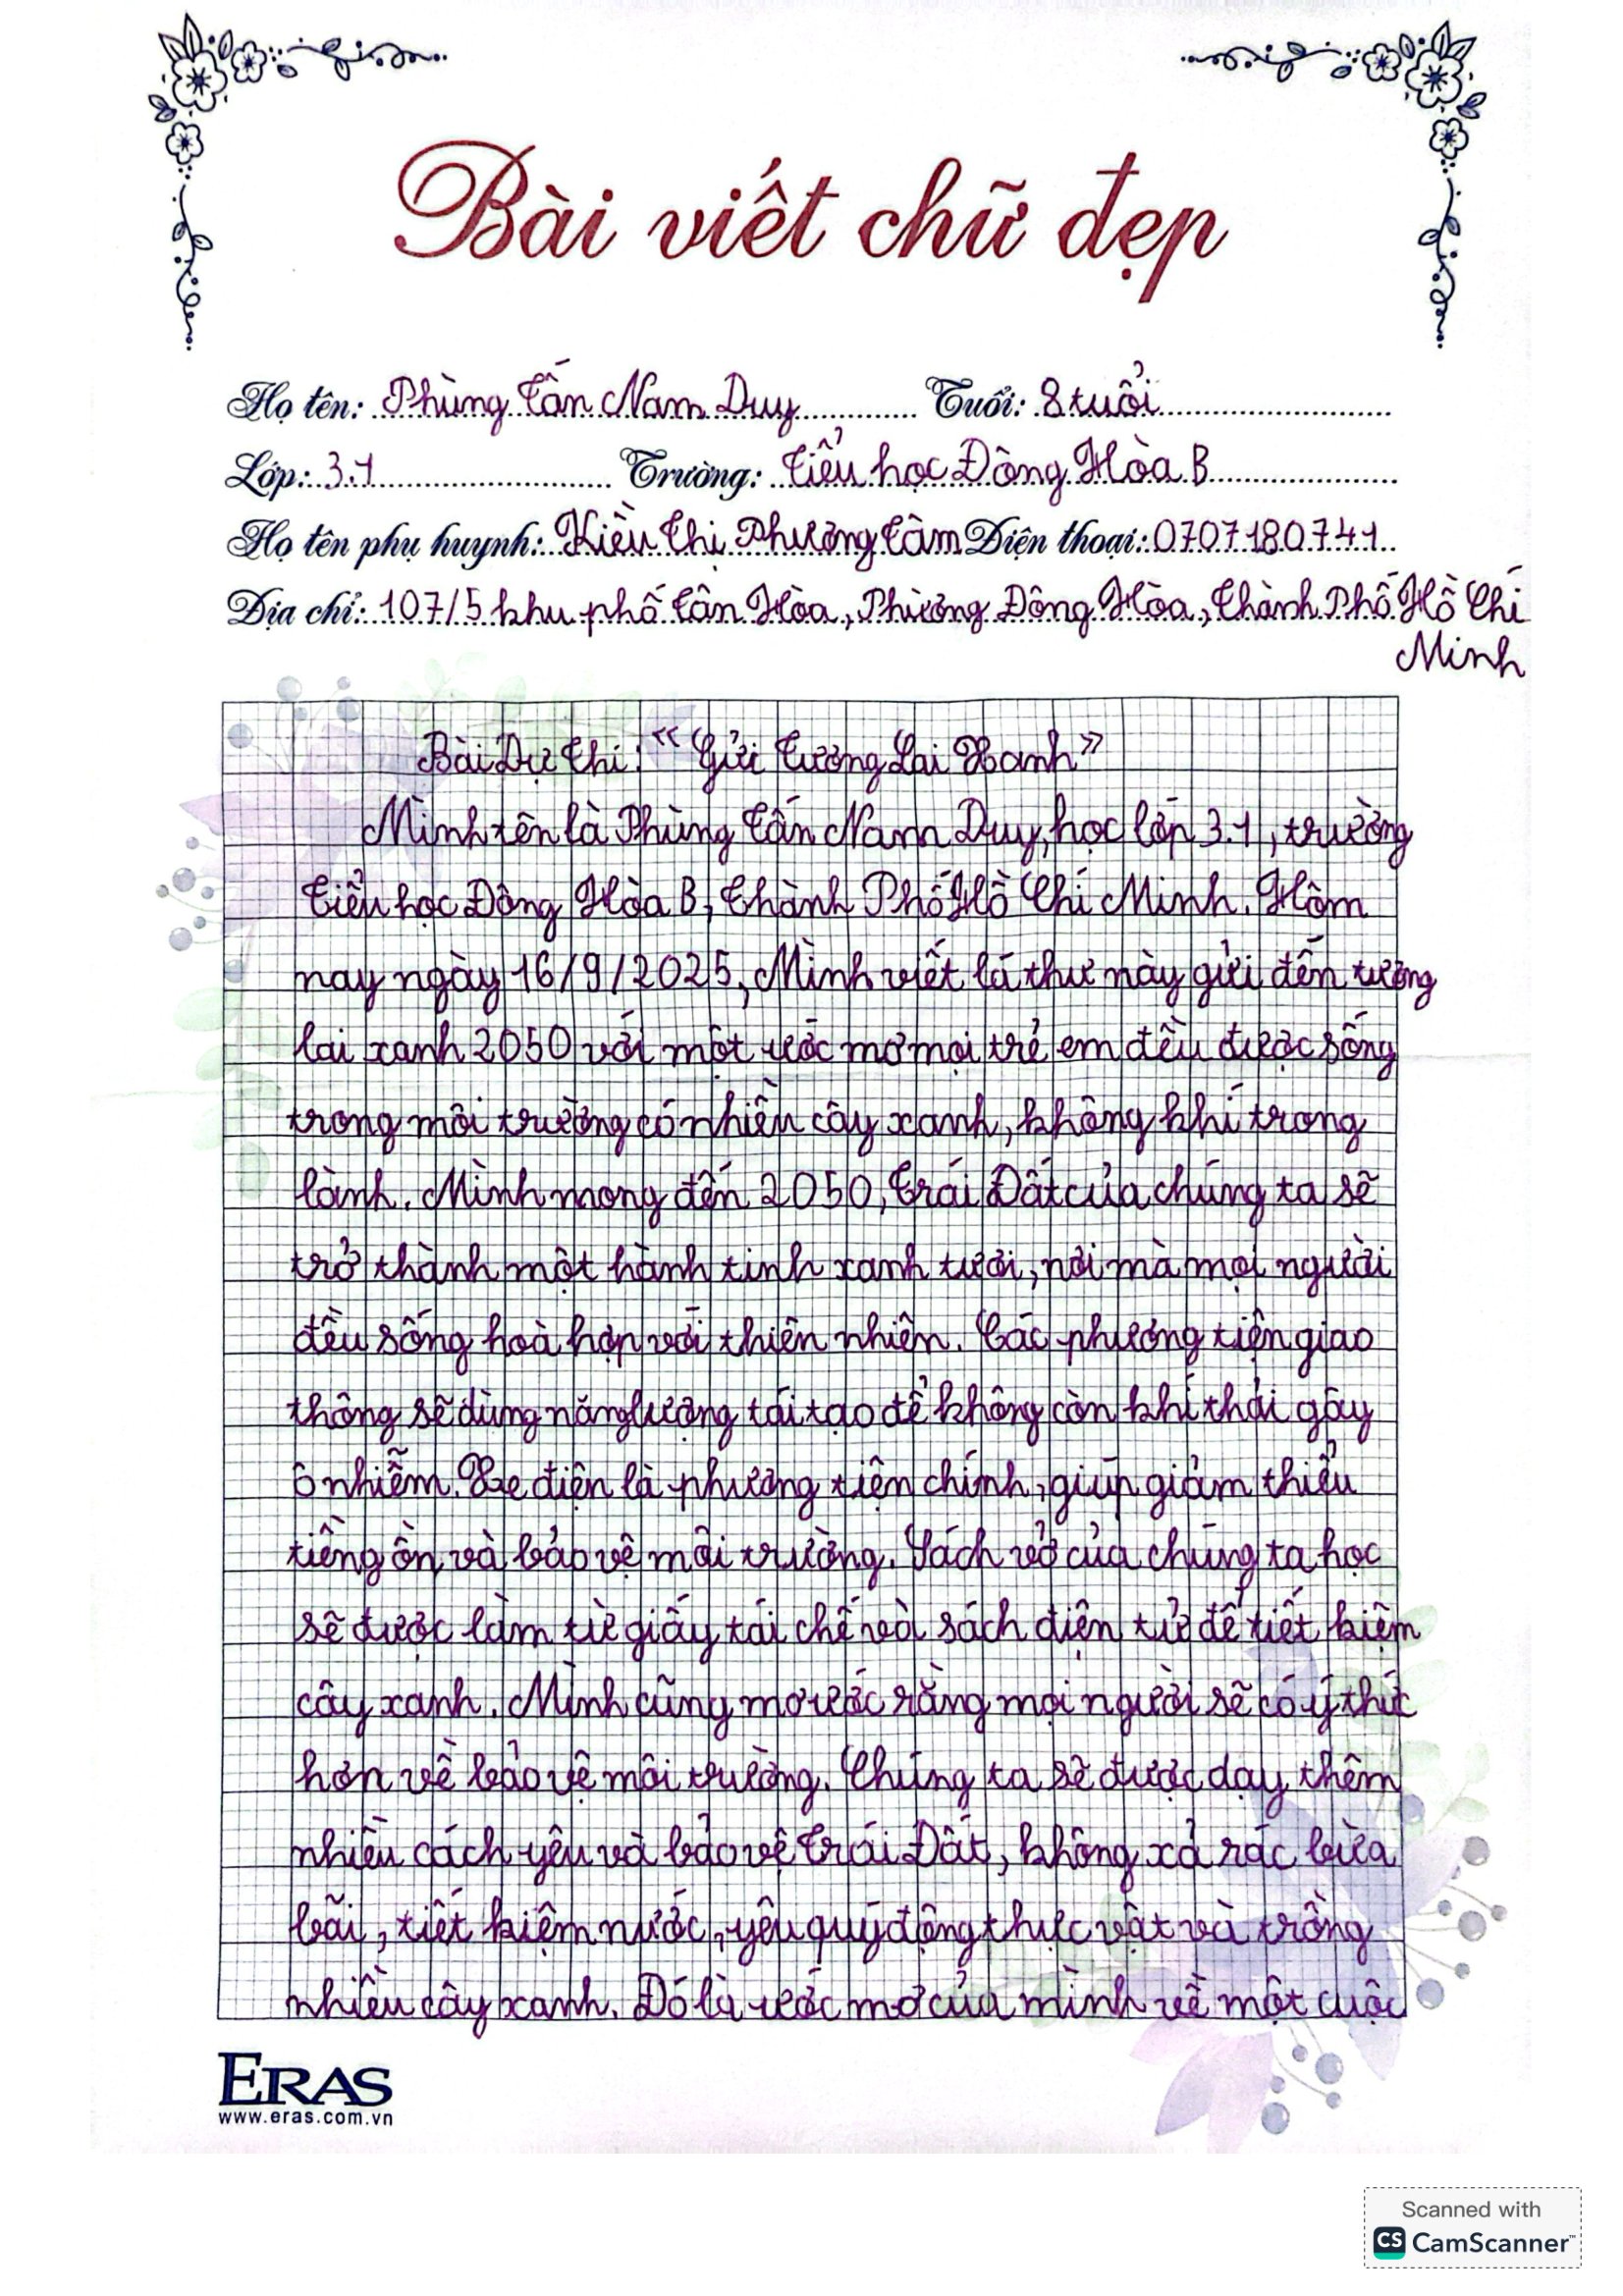 Bài viết chữ đẹp
Họ tên: Phùng Tấn Nam Duy Tuổi: 8 tuổi
Lớp: 3.1 Trường: Tiểu học Đông Hòa B
Họ tên phụ huynh: Kiều Thị Phương Tâm Điện thoại: 0707180741
Địa chỉ: 107/5 khu phố Tân Hòa, Phường Đông Hòa, Thành Phố Hồ Chí
Minh
Bài Dự Thi: "Gửi Tương Lai Xanh"
Mình tên là Phùng Tấn Nam Duy, học lớp 3.1, trường
Tiểu học Đông Hòa B, Thành Phố Hồ Chí Minh. Hôm
nay ngày 16/9/2025, Mình viết lá thư này gửi đến tương
lai xanh 2050 với một ước mơ mọi trẻ em đều được sống
trong môi trường có nhiều cây xanh, không khí trong
lành. Mình mong đến 2050, Trái Đất của chúng ta sẽ
trở thành một hành tinh xanh tươi, nơi mà mọi người
đều sống hoà hợp với thiên nhiên. Các phương tiện giao
thông sẽ dùng năng lượng tái tạo để không còn khí thải gây
ô nhiễm. Xe điện là phương tiện chính, giúp giảm thiểu
tiếng ồn và bảo vệ môi trường. Sách vở của chúng ta học
sẽ được làm từ giấy tái chế và sách điện tử để tiết kiệm
cây xanh. Mình cũng mơ ước rằng mọi người sẽ có ý thức
hơn về bảo vệ môi trường. Chúng ta sẽ được dạy thêm
nhiều cách yêu và bảo vệ Trái Đất, không xả rác bừa
bãi, tiết kiệm nước, yêu quý động thực vật và trồng
nhiều cây xanh. Đó là ước mơ của mình về một cuộc
ERAS
www.eras.com.vn
Scanned with
CS CamScanner™